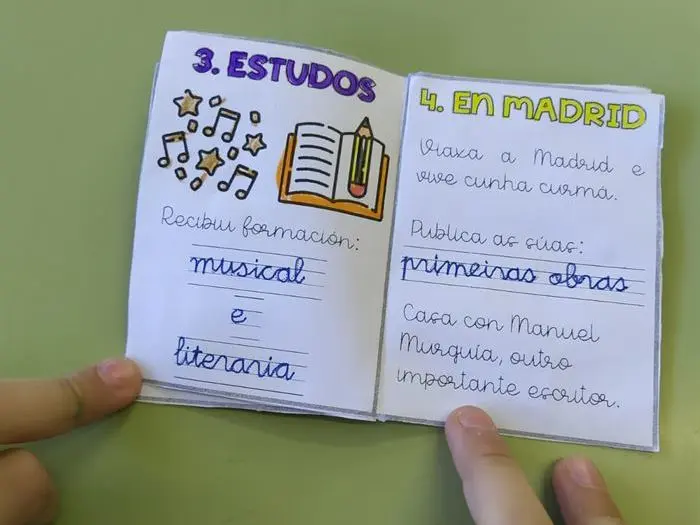 3. ESTUDOS
Recibiu formación:
musical
e
literaria
4. EN MADRID
Viaxa a Madrid e
vive cunha curmá.
Publica as súas:
primeiras obras
Casa con Manuel
Murguía, outro
importante escritor.